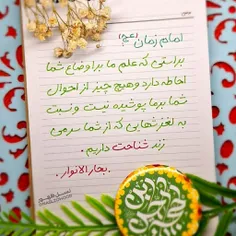 امام زمان (عج)
براستی که علم ما بر اوضاع شما
احاطه دارد و هیچ چیز از احوال
شما بر ما پوشیده نیست و نسبت
به لغزشهایی که از شما سرمی
زند شناخت داریم.
.بحار الانوار.